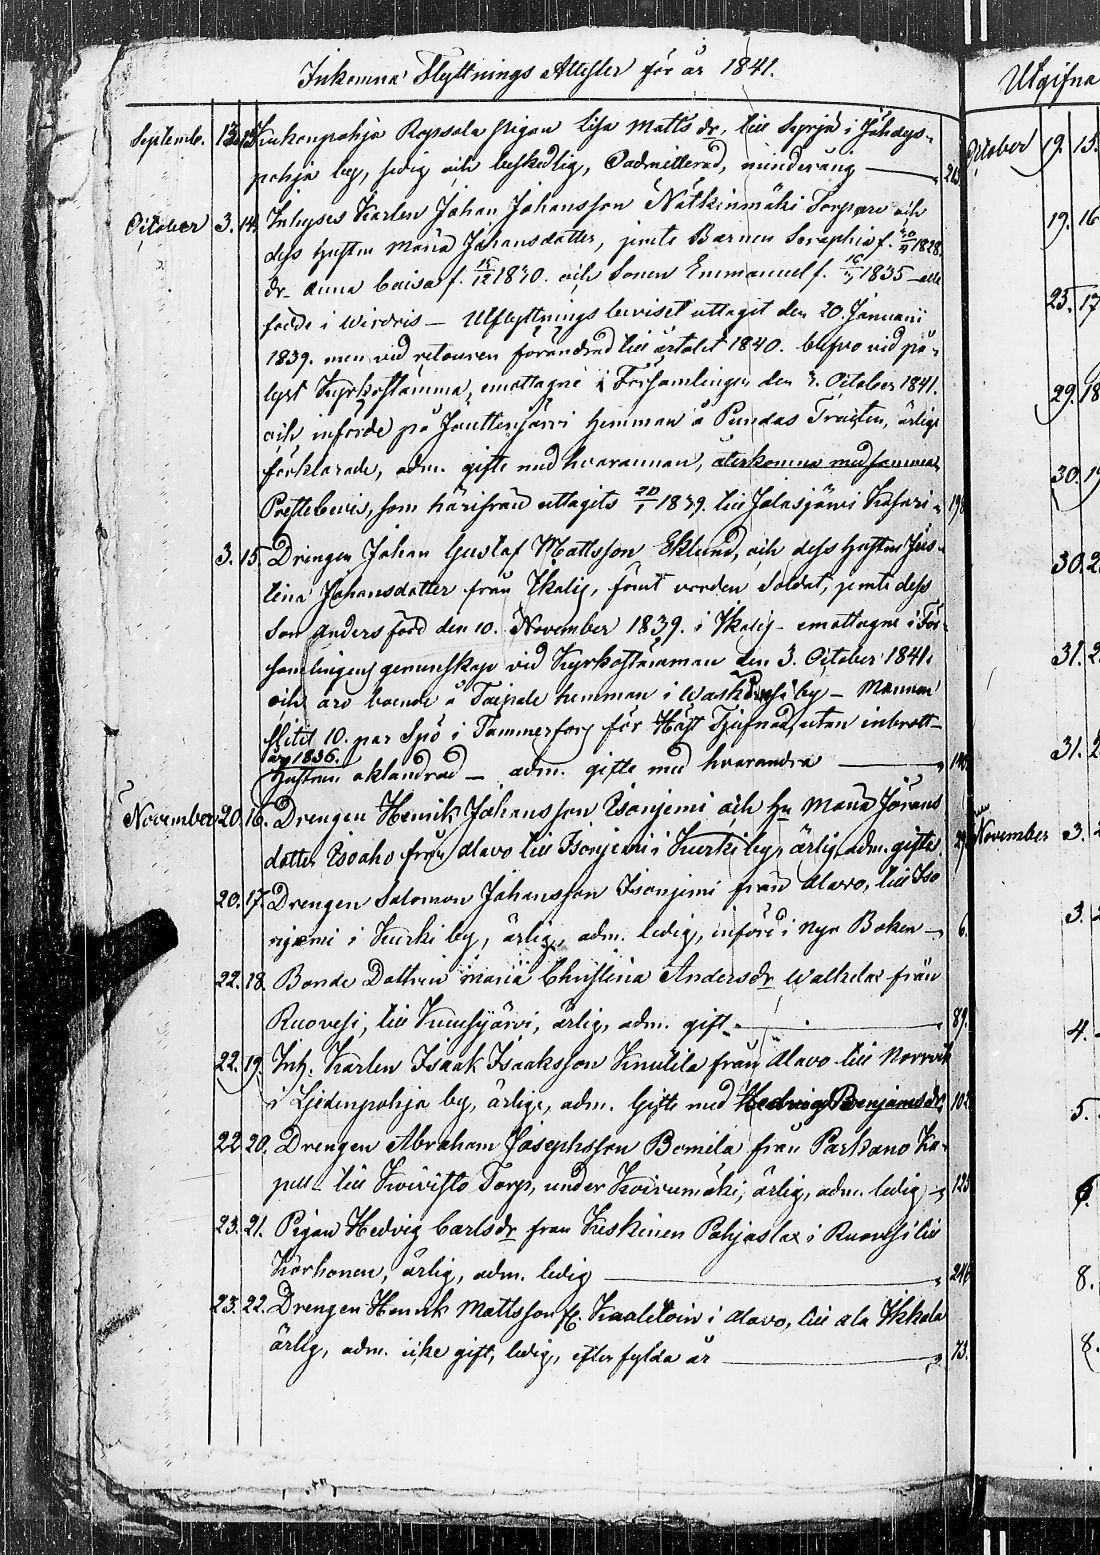 Inkomna Flyttnings Attester för år 1841.
Septemb. 13. 13. Kukonpohja Ropsala pigan Lisa Matts dr, till Syrjä i Jähdys-
pohja by, sedig och beskedlig, Oadmitterad, minderårig
October 3. 14. Inhyses Karlen Johan Johansson Nätkinmäki Torpare och
dess hustru Maria Johansdotter, jemte Barnen Seraphia f. 1828.
dr Anna Caisa f. 15/12 1830. och Sonen Emmanuel f. 1835 alle
födde i Wirdois — Utflyttnings beviset uttaget den 20. Januarii
1839. men vid retouren förändrad till årtalet 1840. vid på-
lyst Kyrkostämma, emottagne i Församlingen den 3. October 1841.
och införde på Jäuttenjärvi hemman å Pundas Tracten, ärlige
förklarade, adm. gifte med hvarannan, återkomne med samma
Prestebevis, som härifrån uttagits 20/1 1839. till Jalasjärvi 198
3. 15. Drengen Johan Gustaf Mattsson Eklund, och dess hustru Jus-
tina Johansdotter från Ikalis, förut varden Soldat, jemte dess
Son Anders född den 10. November 1839. i Ikalis — emottagne i För-
samlingens gemenskap vid Kyrkostämman den 3. October 1841.
och äro boende å Taipale hemman i by — Mannen
slitit 10. par Spö i Tammerfors för Häst Tjufnad, utan inbrott
år 1836.
Hustrun oklandrad — adm. gifte med hvarandra
November 20. 16. Drengen Henrik Johansson Isonjemi och Hu Maria Jörans
dotter Isoaho från Alavo till Isonjemi i Kurki by, ärlig, adm. gifte. 29
20. 17. Drengen Salomon Johansson Isonjemi från Alavo, till Iso
njemi i Kurki by, ärlig, adm. ledig, införd i nya Boken 6.
22. 18. Bonde Dottren Maria Christina Anders dr från
Ruovesi, till Kuusijärvi, ärlig, adm. gift 89.
22. 19. Inh. Karlen Isaak Isaaksson Knutila från Alavo till Norrvik
i Liedenpohja by, ärlige, adm. Gifte med Hedvig Benjamsdr. 102
22. 20. Drengen Abraham Josephsson Bomila från Parkano Ka-
pell till Koivisto Torp, under Koivumäki, ärlig, adm. ledig 125
23. 21. Pigan Hedvig Carlsdr från Keskinen Pohjaslax i Ruovesi till
Korhonen, ärlig, adm. ledig 246
23. 22. Drengen Henrik Mattsson f. i Alavo, till ala Ikkala
ärlig, adm. icke gift, ledig, efter fylda år 73.
Utgifna
October 19. 15.
19. 16
25. 17
29. 18
30. 19
30. 2
31. 2
31. 2
November 3. 2
3. 2
4.
5.
6.
8.
8.